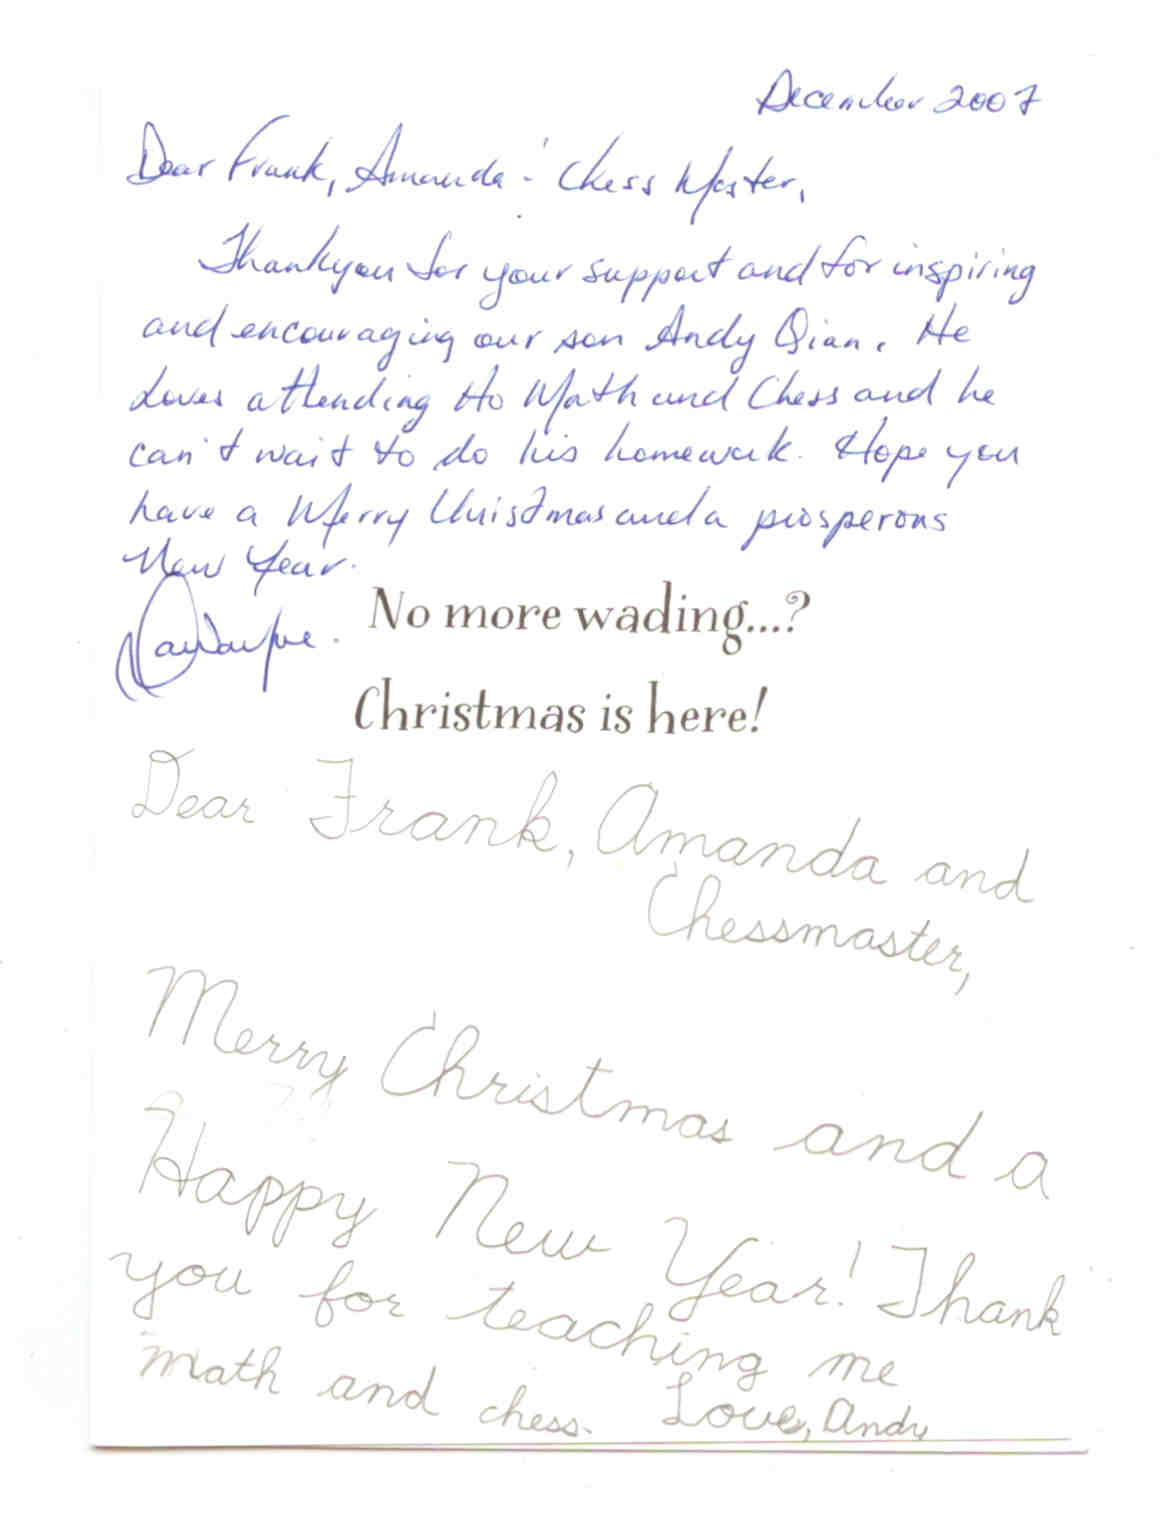 December 2007
Dear Frank, Amanda - Chess Master,
Thankyou for your support and for inspiring
and encouraging our son Andy Qian. He
Loves attending Ho Math and Chess and he
can't wait to do his homework. Hope you
have a Merry Christmas and a prosperous
New Year.
No more wading...?
Christmas is here!
Dear Frank, Amanda and
Chessmaster,
Merry Christmas and a
Happy New Year! Thank
you for teaching me
math and chess. Love, Andy